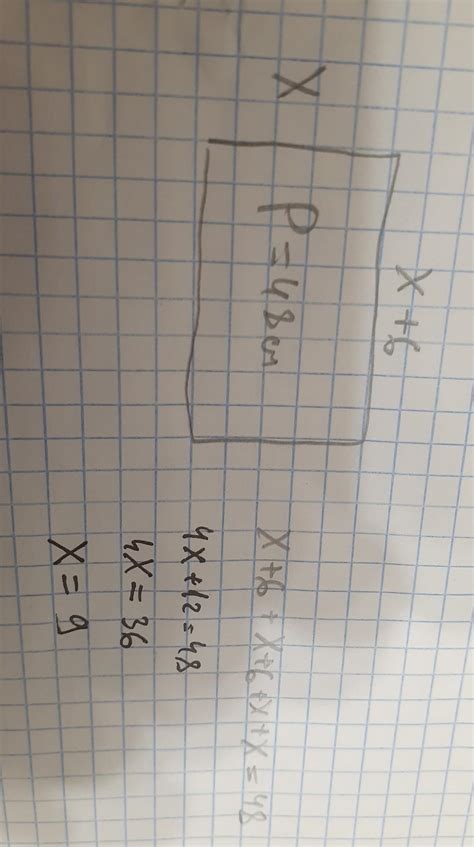 x+6
x
P=48см
x+6+x+6+x+x=48
4x+12=48
4x=36
x=9